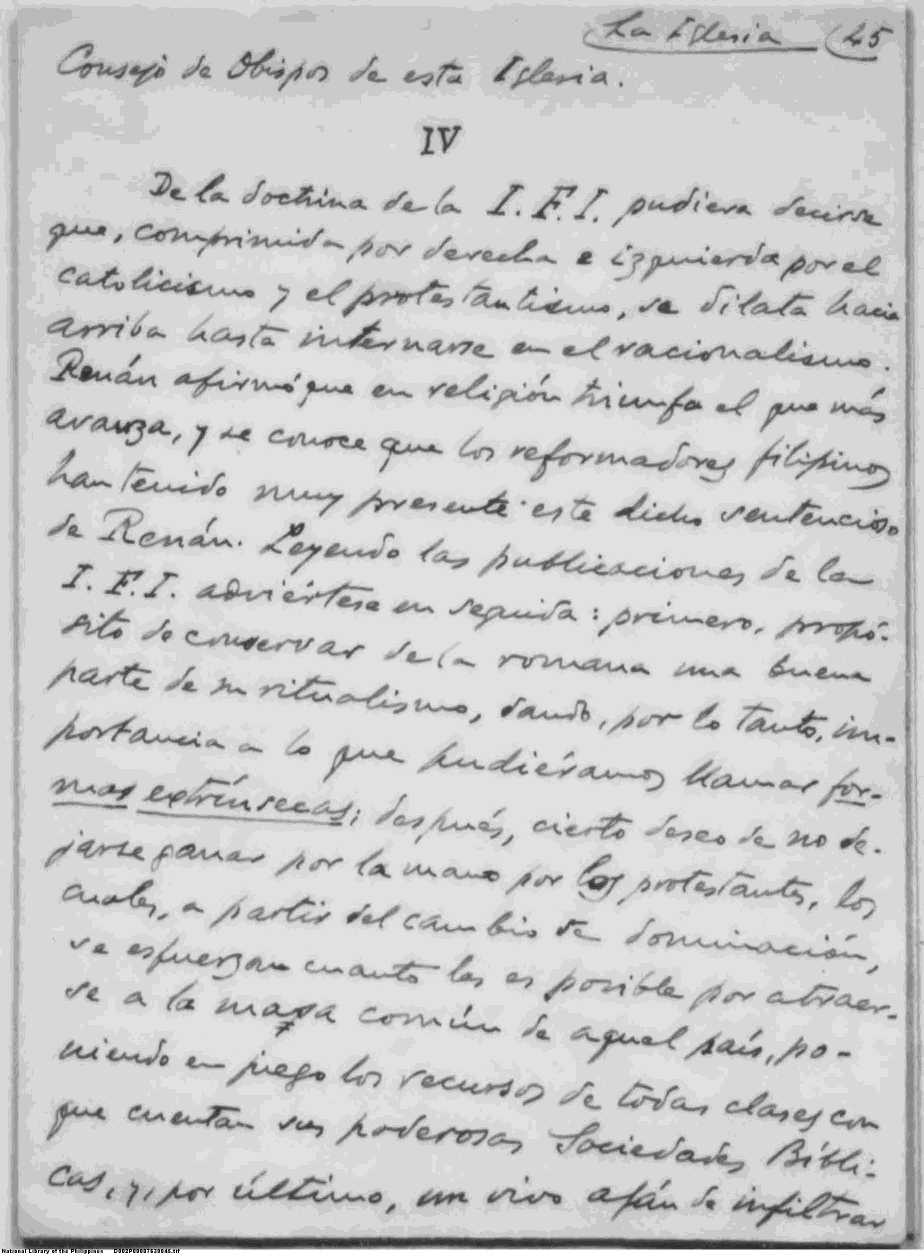 La Iglesia 45
Consejo de Obispos de esta Iglesia.
IV
De la doctrina de la I. F. I. pudiera decirse
que, comprimida por derecha e izquierda por el
catolicismo y el protestantismo, se dilata hacia
arriba hasta internarse en el racionalismo.
Renán afirmó que en religión triunfa el que más
avanza, y se conoce que los reformadores filipinos
han tenido muy presente este dicho sentencioso
de Renán. Leyendo las publicaciones de la
I. F. I. adviértese en seguida: primero, propó-
sito de conservar de la romana una buena
parte de su ritualismo, dando, por lo tanto, im-
portancia a lo que pudiéramos llamar for-
mas extrínsecas; después, cierto deseo de no de-
jarse ganar por la mano por los protestantes, los
cuales, a partir del cambio de dominación,
se esfuerzan cuanto les es posible por atraer-
se a la masa común de aquel país, po-
niendo en juego los recursos de todas clases con
que cuentan sus poderosas Sociedades Bíbli-
cas, y, por último, un vivo afán de infiltrar
National Library of the Philippines